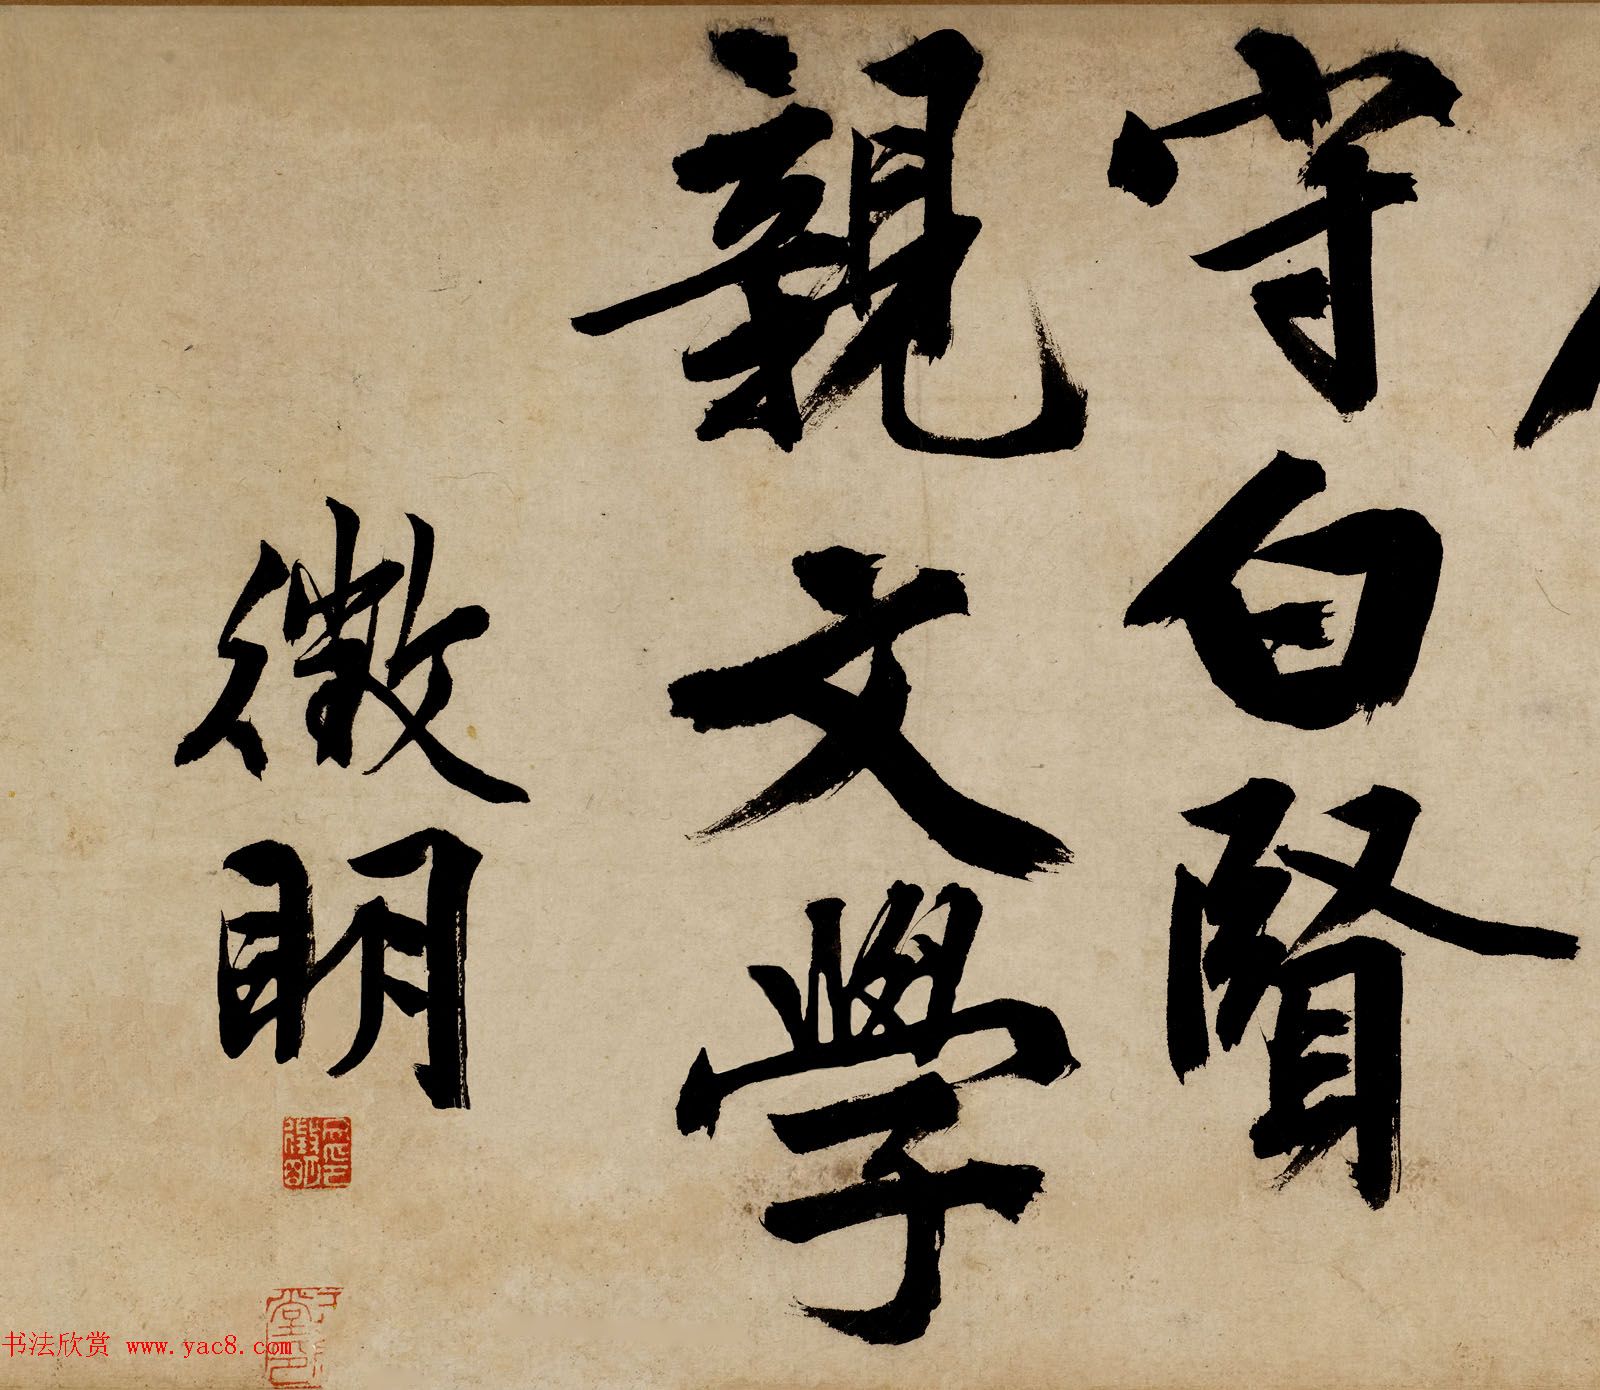 守白賢
親文學
徵明
書法欣赏 www.yac8.com